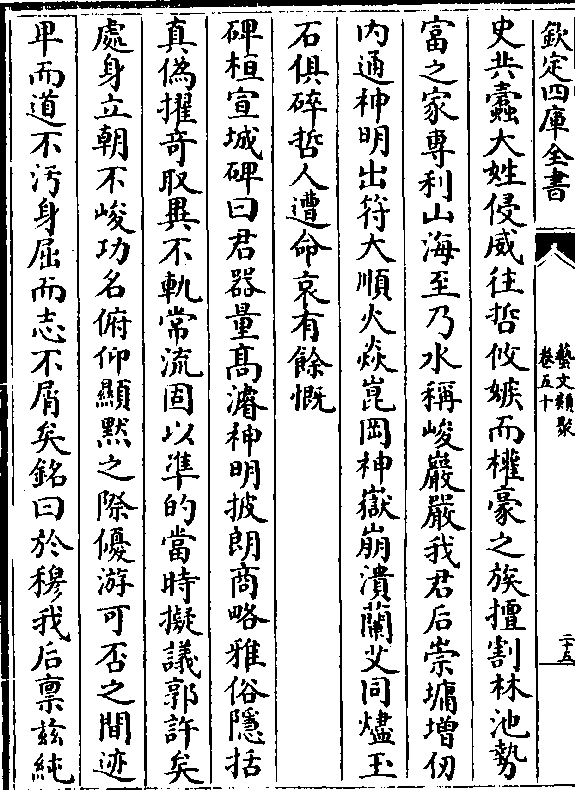 欽定四庫全書
藝文類聚
卷五十
二十五
史共蠹大姓侵威往哲攸嫉而權豪之族擅割林池勢
富之家專利山海至乃水稱峻巖嚴我君后崇墉增仞
内通神明出符大順火焱崑岡神嶽崩潰蘭艾同燼玉
石俱碎哲人遭命哀有餘慨
碑桓宣城碑曰君器量髙濬神明披朗商略雅俗隱括
真偽擢竒取異不軌常流固以準的當時擬議郭許矣
處身立朝不峻功名俯仰顯默之際優游可否之間迹
卑而道不汚身屈而志不屑矣銘曰於穆我后禀兹純